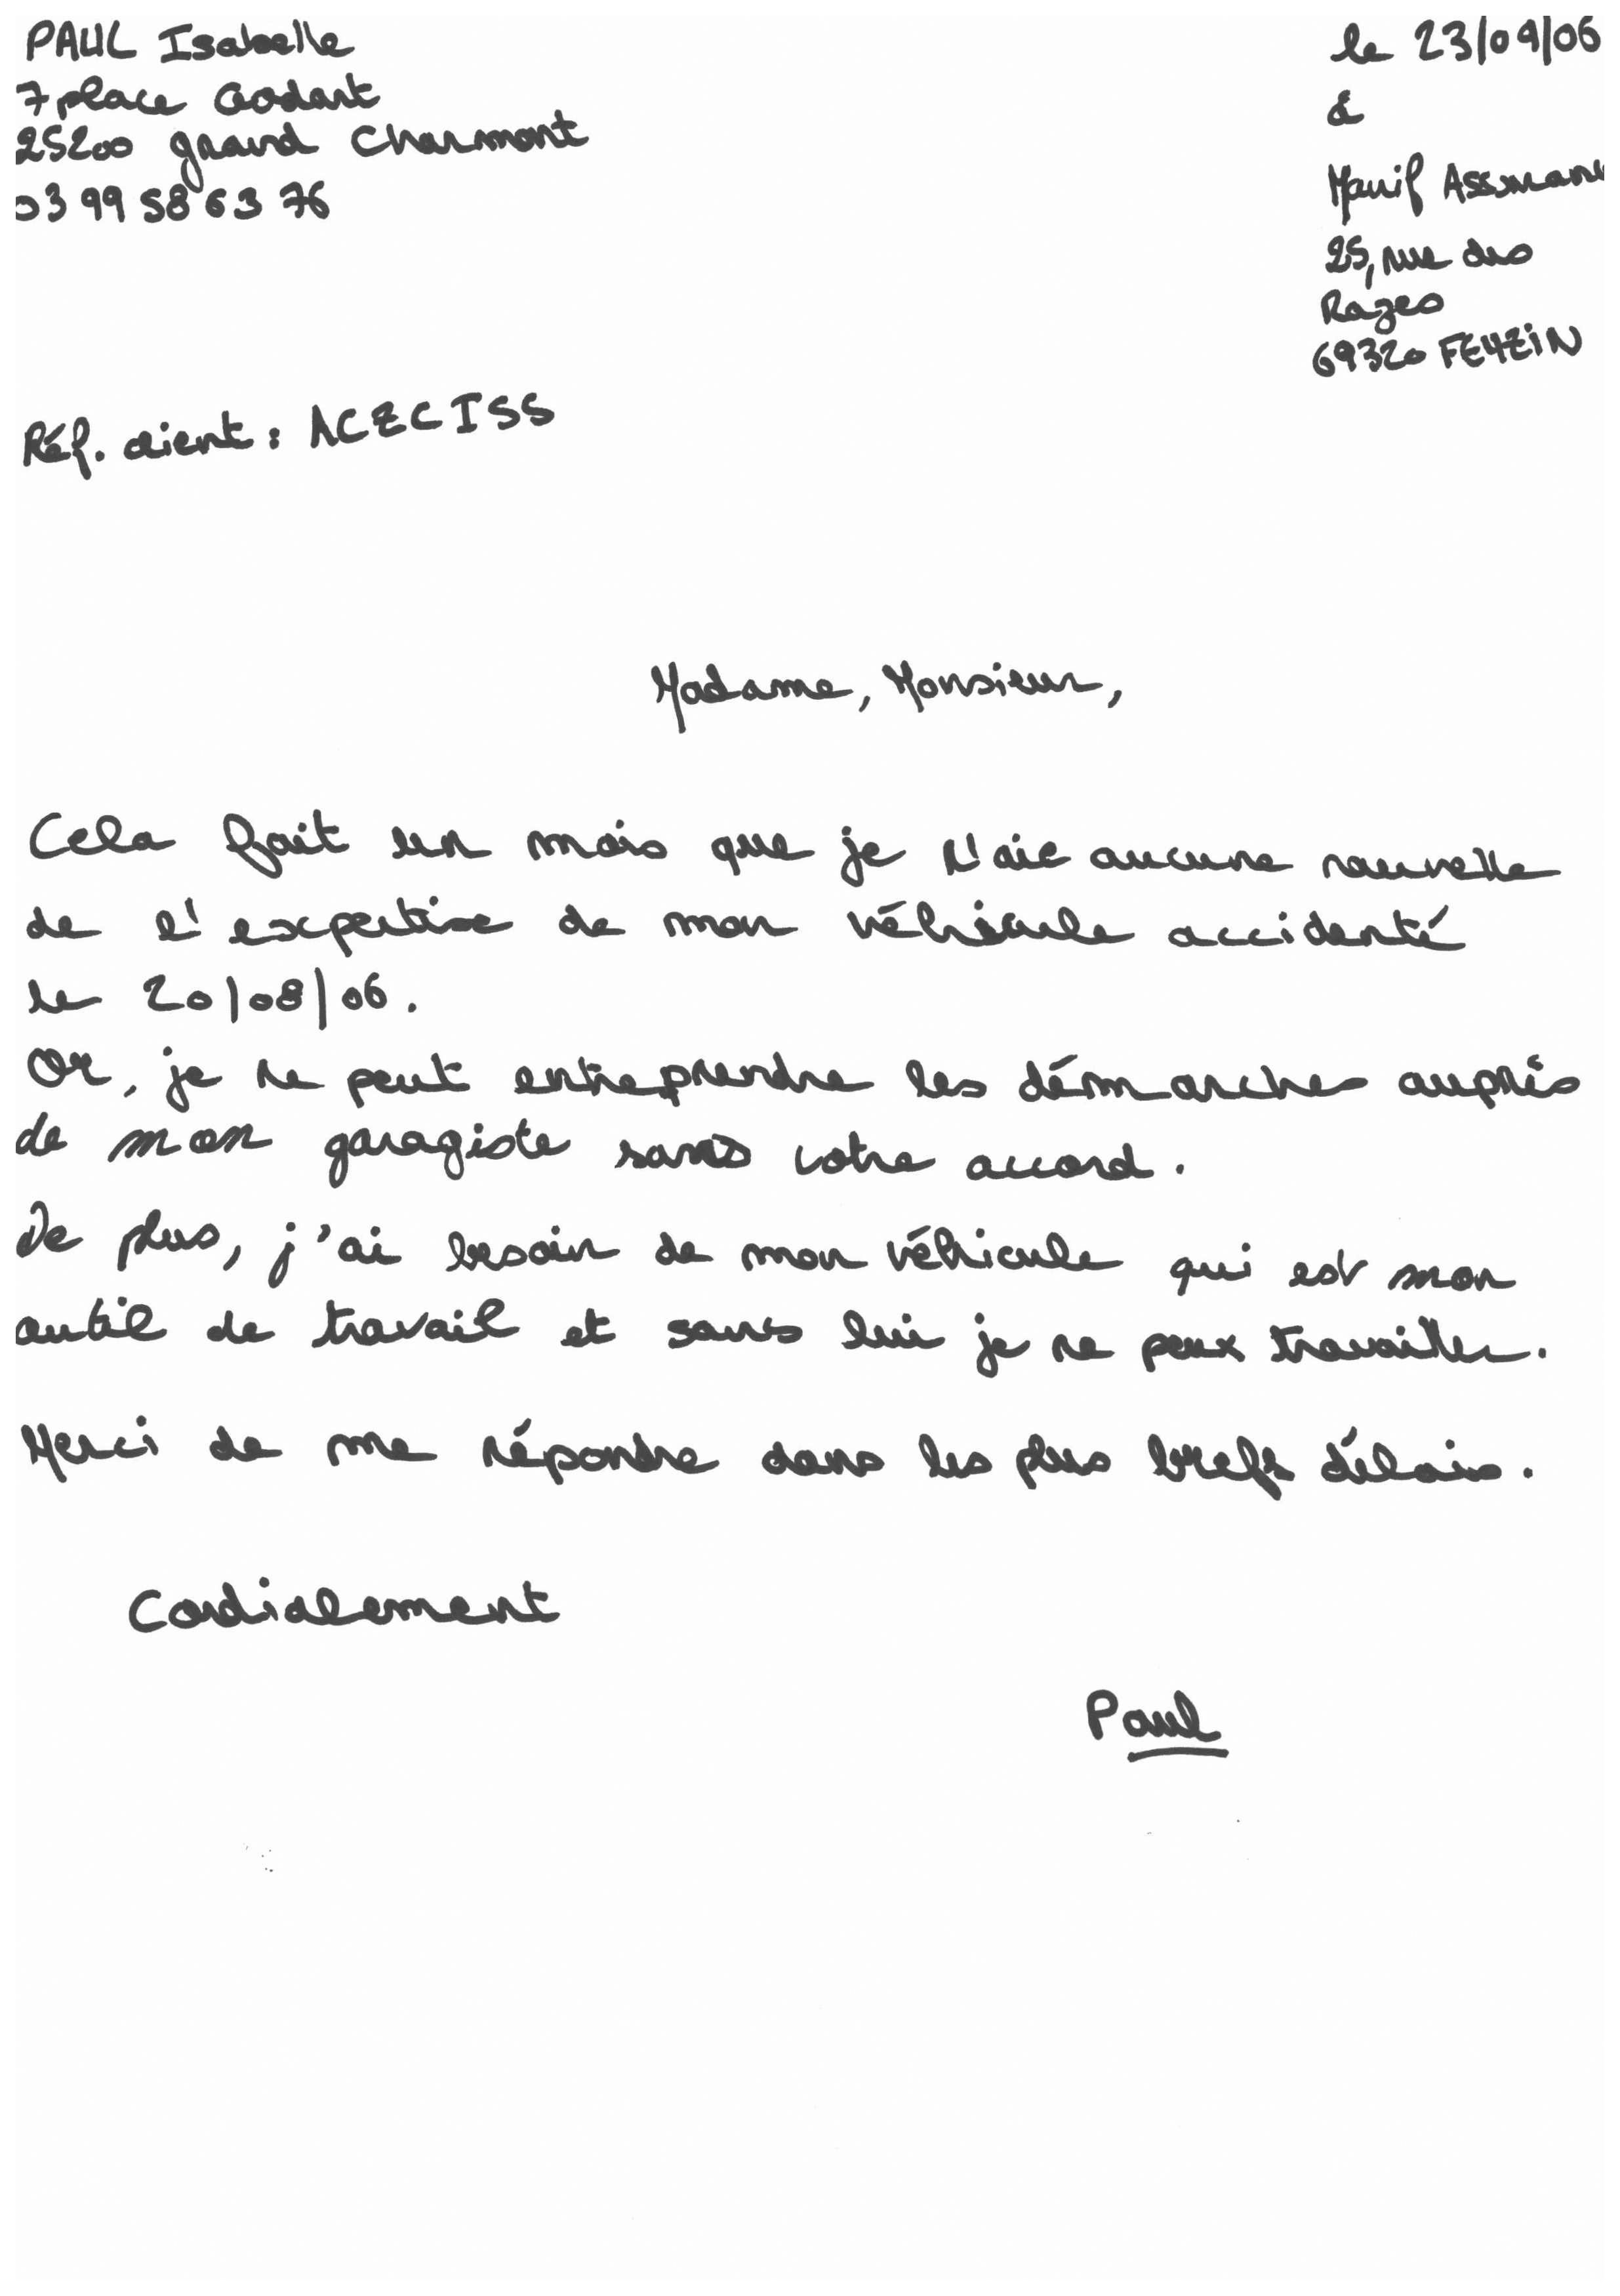 PAUL Isabelle
7 place Godart
25200 grand Charmont
03 99 58 63 76
le 23/09/06
à
Manif
25, rue des
Razes
69320 FEYZIN
Réf. client : ACZCISS
Madame, Monsieur,
Cela fait un mois que je n'aie aucune nouvelle
de l'expertise de mon véhicule accidenté
le 20/08/06.
Or, je ne peut entreprendre les démarches auprès
de mon garagiste sans votre accord.
De plus, j'ai besoin de mon véhicule qui est mon
outil de travail et sans lui je ne peux travailler.
Merci de me répondre dans les plus brefs délais.
Cordialement
Paul